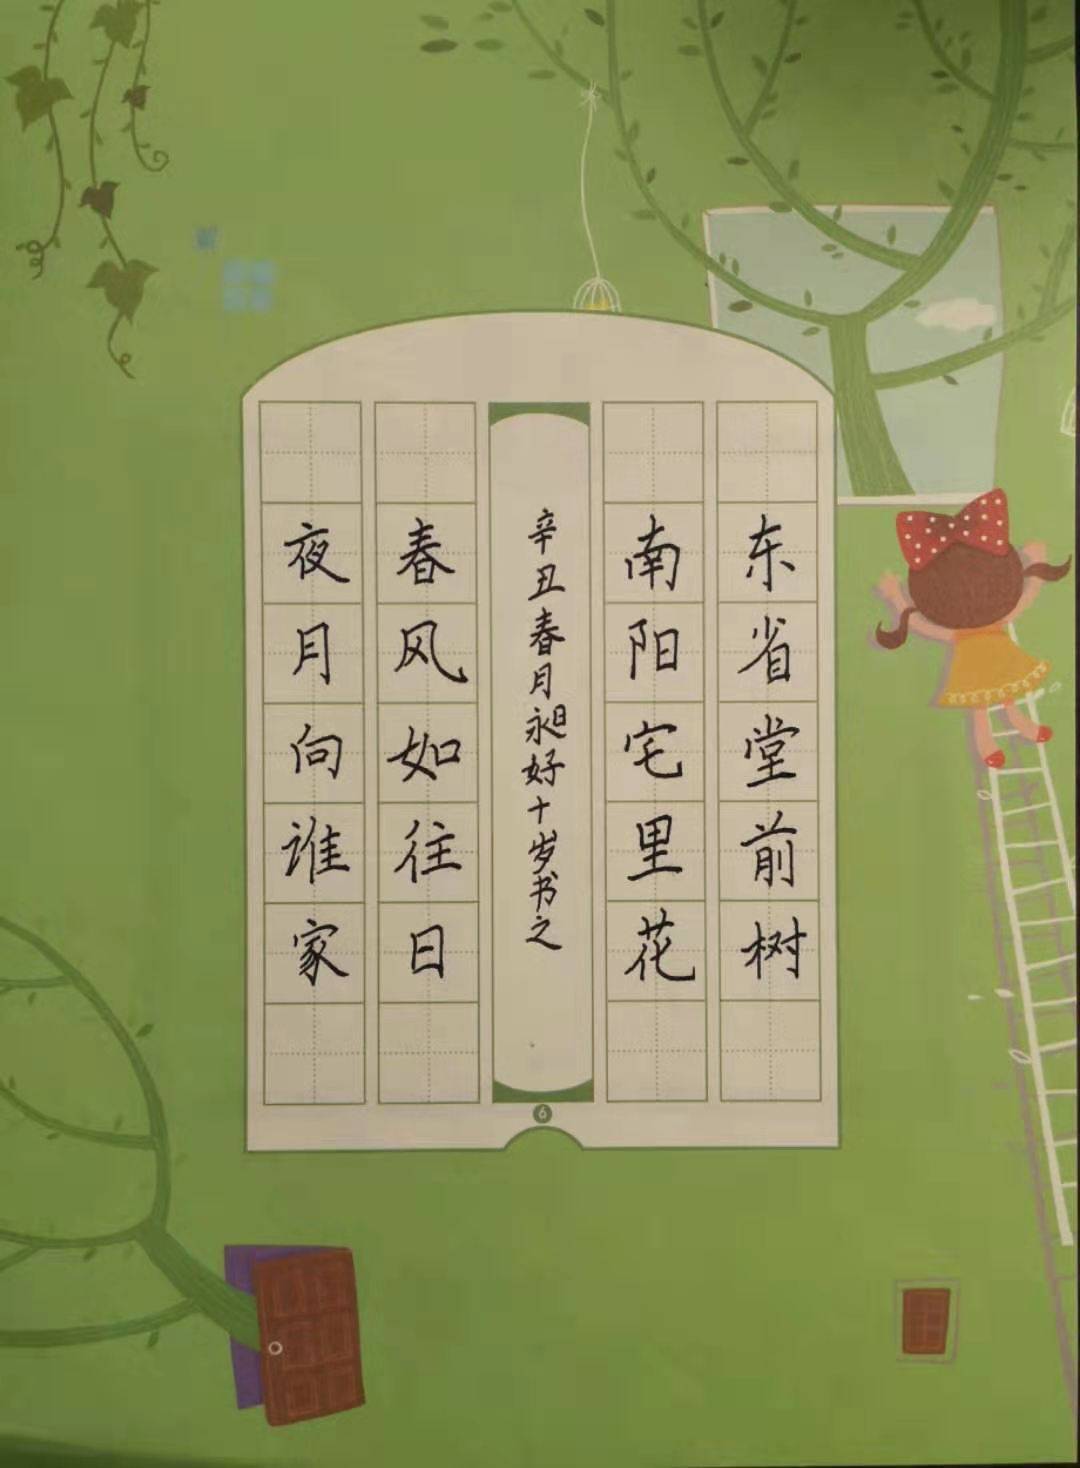 东省堂前树
南阳宅里花
辛丑春月永昍好十岁书之
春风如往日
夜月向谁家
6